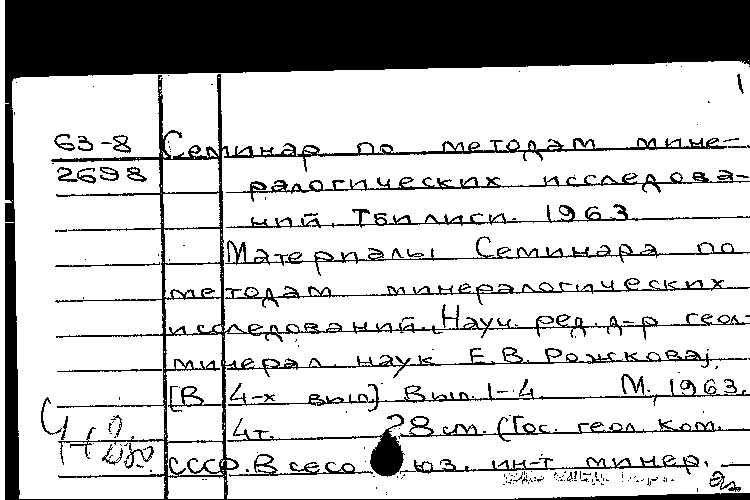 1
63-8
2698
Семинар по методам мине-
ралогических исследова-
ний. Тбилиси. 1963.
Материалы Семинара по
методам минералогических
исследований. [Науч. ред. д-р геол-
минерал. наук Е.В. Рожкова].
[В 4-х вып.] Вып. 1-4. М., 1963.
4т. 28 см. (Гос. геол. ком.
СССР. Всесоюз. ин-т минер.